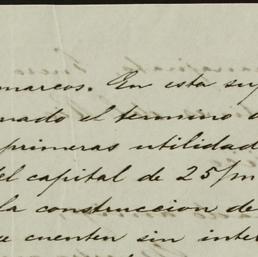 marcos. En esta su
nado el termino
primeras utilidad
el capital de 25/m
la construccion de
cuenten sin inte